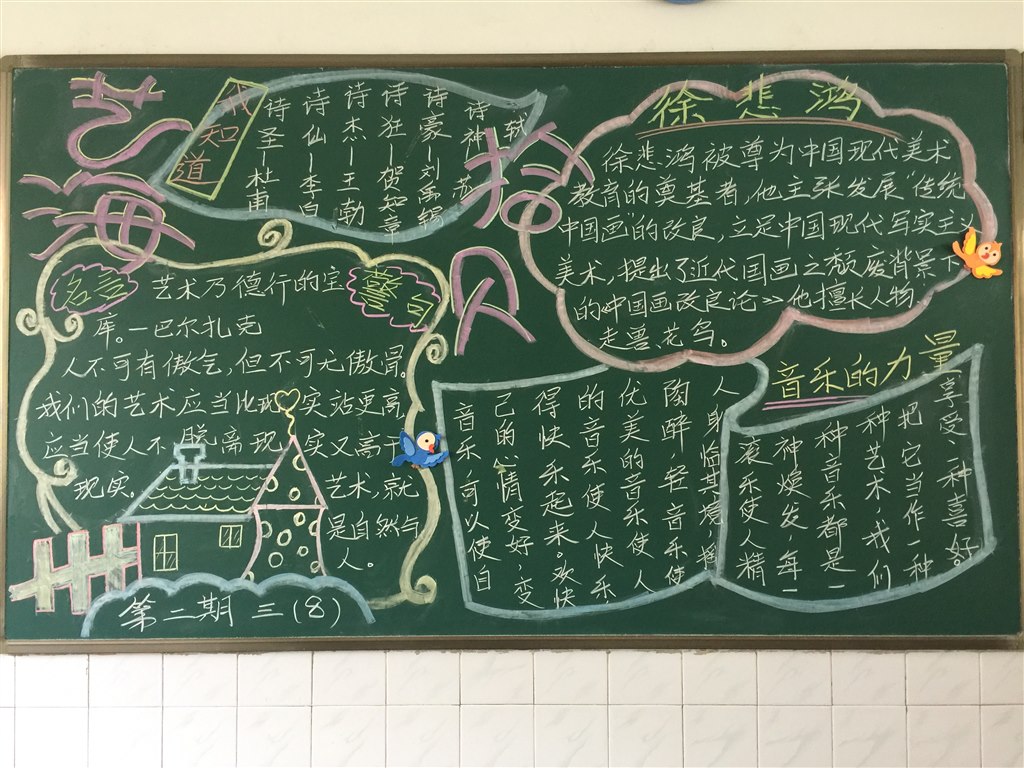 艺海拾贝
我知道
诗圣—杜甫
诗仙—李白
诗杰—王勃
诗狂—贺知章
诗豪—刘禹锡
诗神—苏轼
徐悲鸿
徐悲鸿被尊为中国现代美术
教育的奠基者,他主张发展“传统
中国画”的改良,立足中国现代写实主义
美术,提出了近代国画之颓废背景下
的《中国画改良论》他擅长人物
走兽花鸟。
名言
警句
艺术乃德行的宝
库。—巴尔扎克
人不可有傲气,但不可无傲骨。
我们的艺术应当比现实站更高,
应当使人不脱离现实又高于
现实。
艺术,就
是自然与
人。
音乐的力量
音乐可以使自
己的心情变好,变
得快乐起来。欢快
的音乐使人快乐,
优美的音乐使人
陶醉,轻音乐使
人身临其境,
哀乐使人精
神焕发,每一
种音乐都是一
种艺术,我们
把它当作一种
享受,一种喜好。
第二期 三(8)